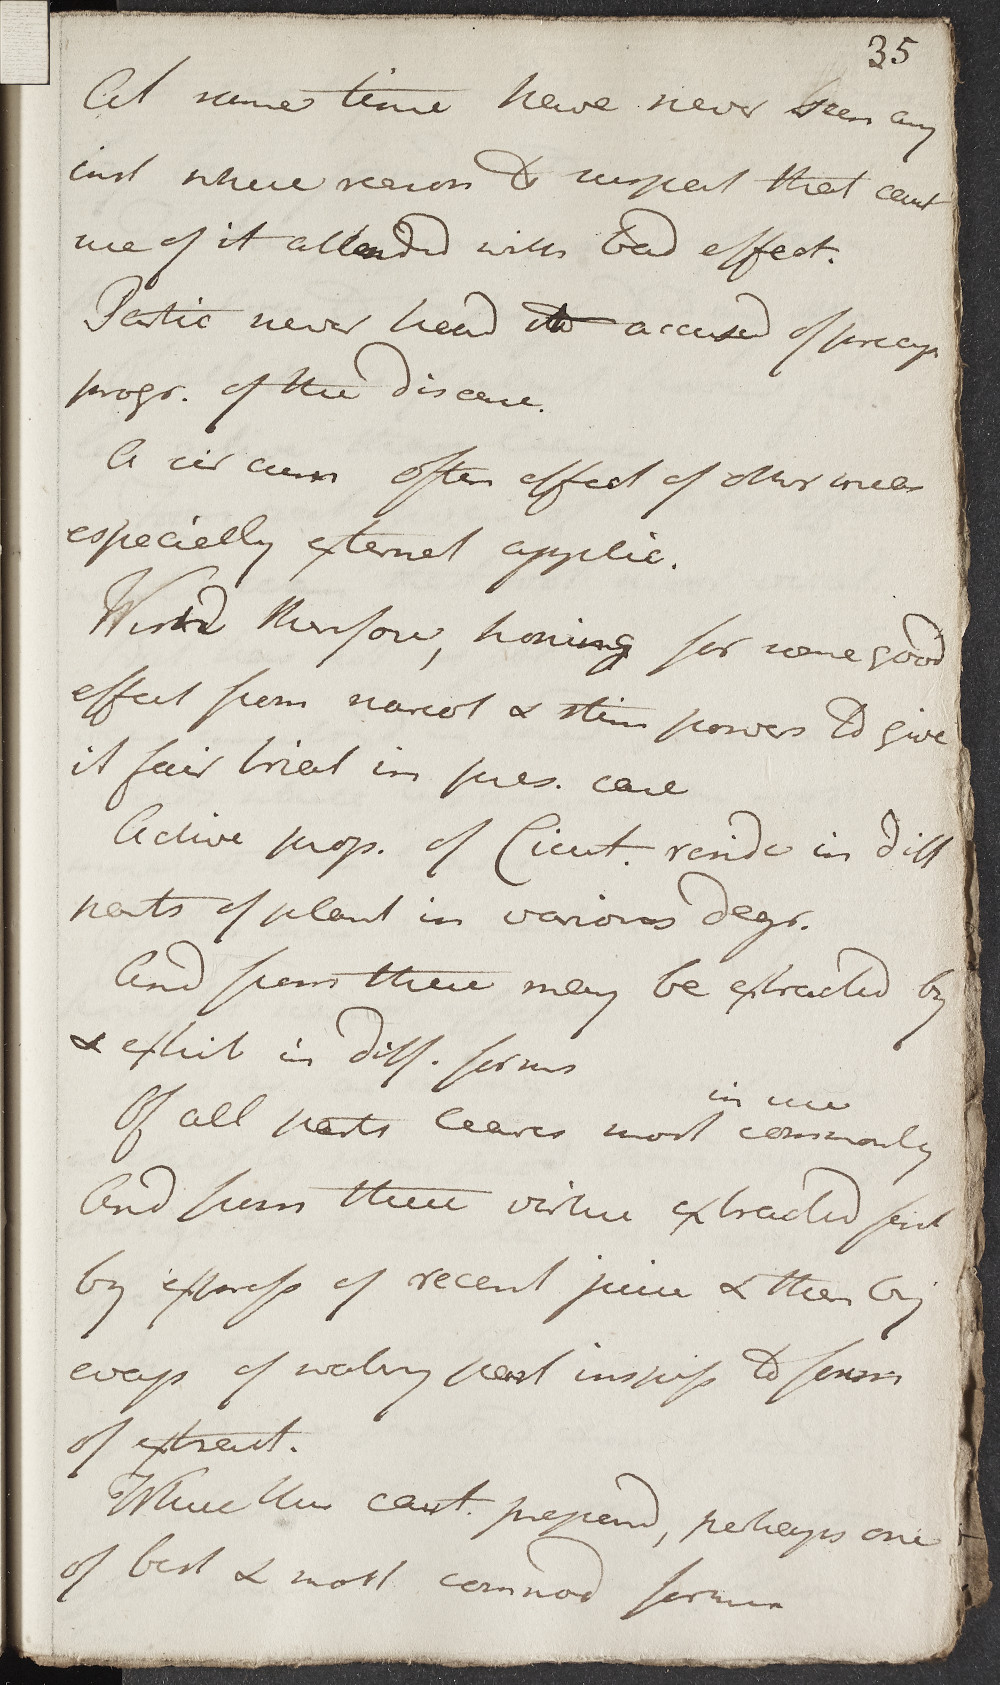 35
At same time have never seen any
inst where reason to suspect that caut
use of it attended with bad effect.
Partic never heard it accused of precip
progr. of the disease.
A circum often effect of other meas
especially external applic.
Wish'd therefore, hoping for some good
effect from narcot & stim powers to give
it fair trial in pres. case
Active prop. of Cicut. reside in diff
parts of plant in various degr.
And from these may be extracted by
& exhib in diff. forms
in use
Of all parts leaves most commonly
And from these virtue extracted first
by express of recent juice & then by
evap of watery part inspiss to form
of extract.
Where this caut. prepared, perhaps one
of best & most commod forms